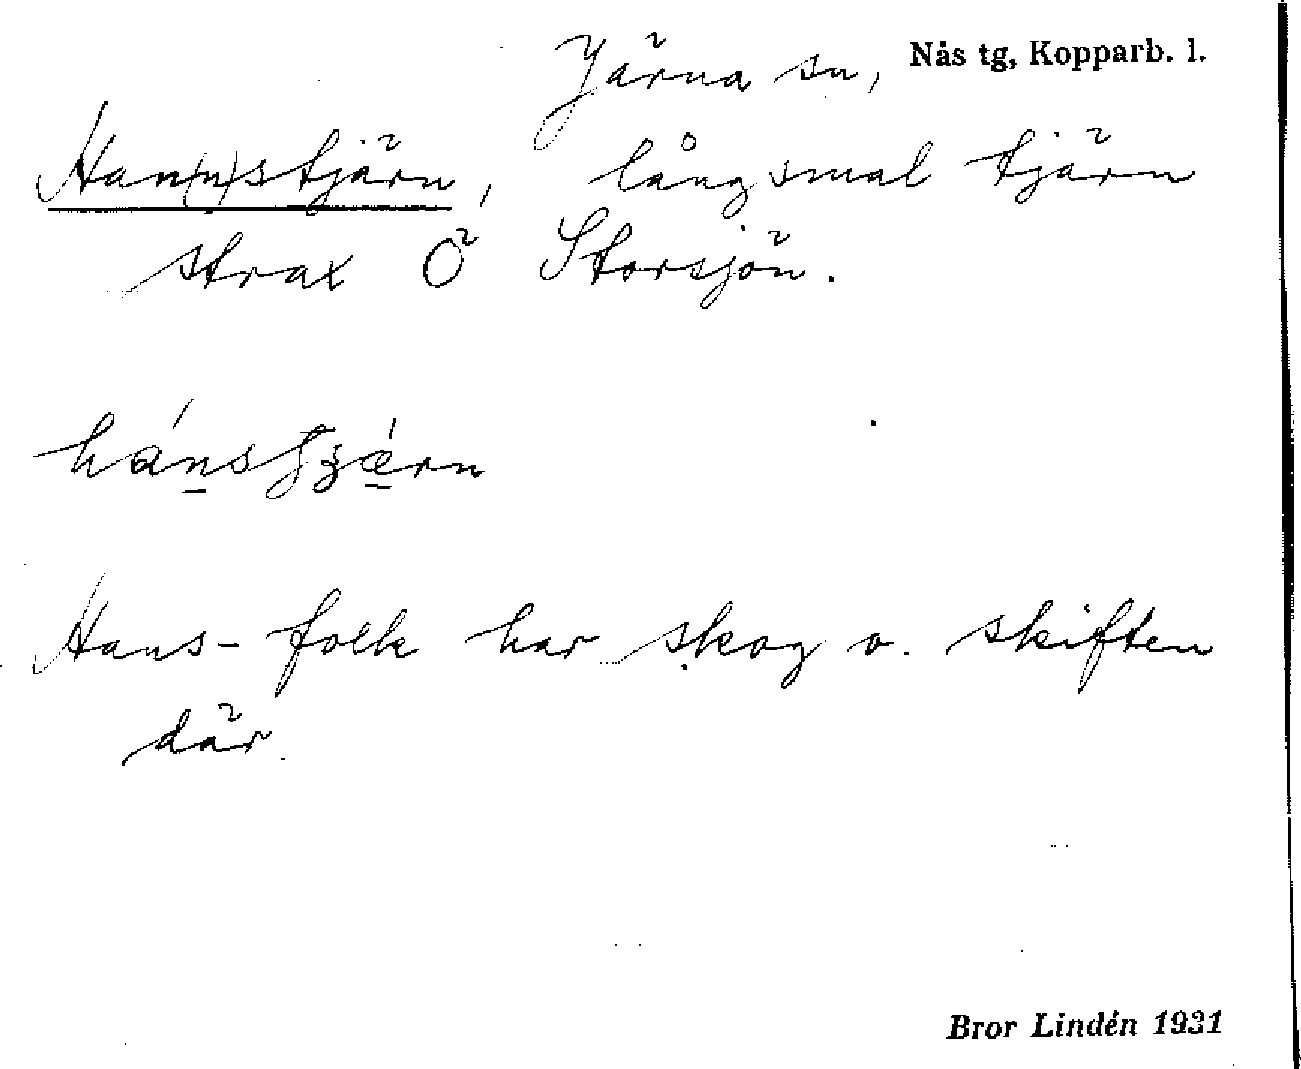 Järna sn, Nås tg, Kopparb. l.
Han(n)stjärn, långsmal tjärn
strax Ö Storsjön.
Hans-folk har skog o. skiften
där.
Bror Lindén 1931